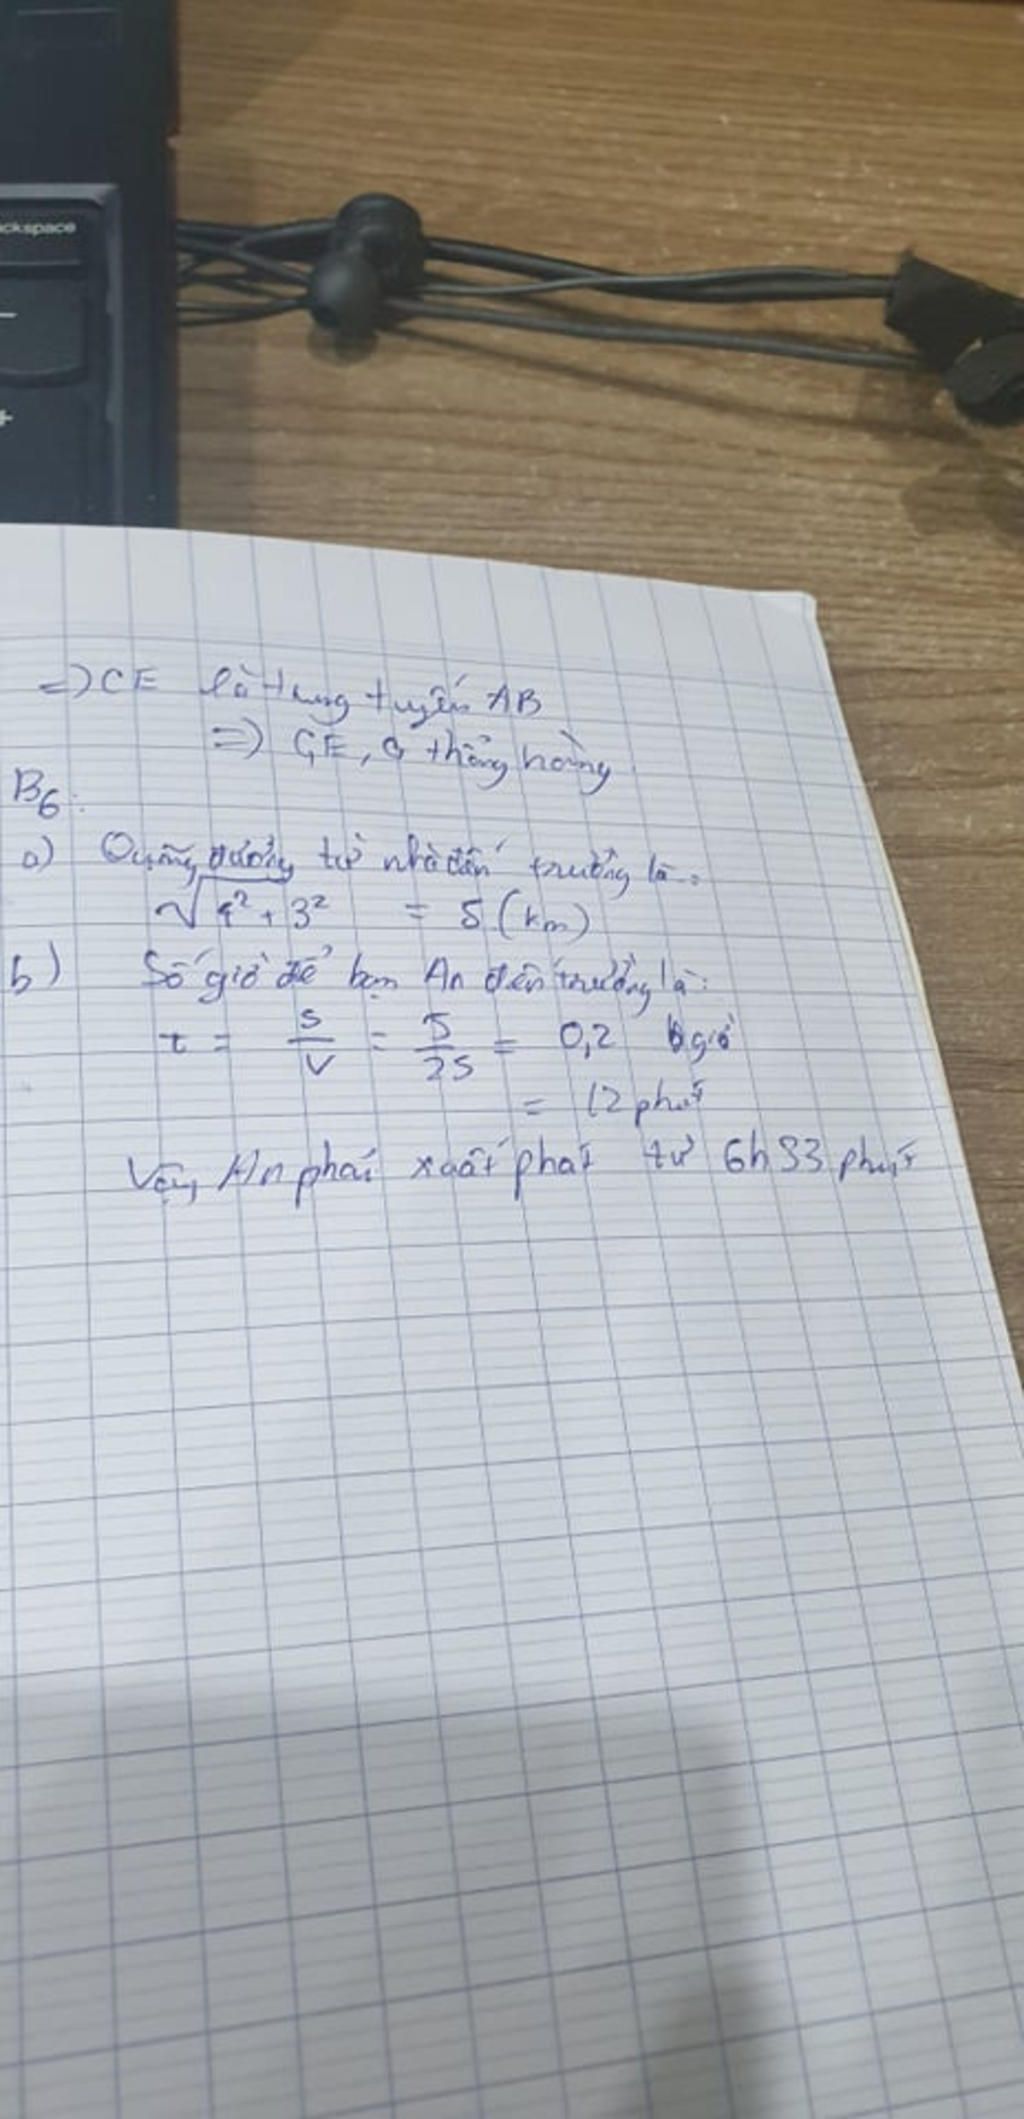 ckspace
–
+
=> CE là trung tuyến AB
=> C, E, G thẳng hàng
B6:
a) Quãng đường từ nhà đến trường là:
√4² + 3² = 5 (km)
b) Số giờ để bạn An đến trường là:
t = S/V = 5/25 = 0,2 giờ
= 12 phút
Vậy An phải xuất phát từ 6h33 phút